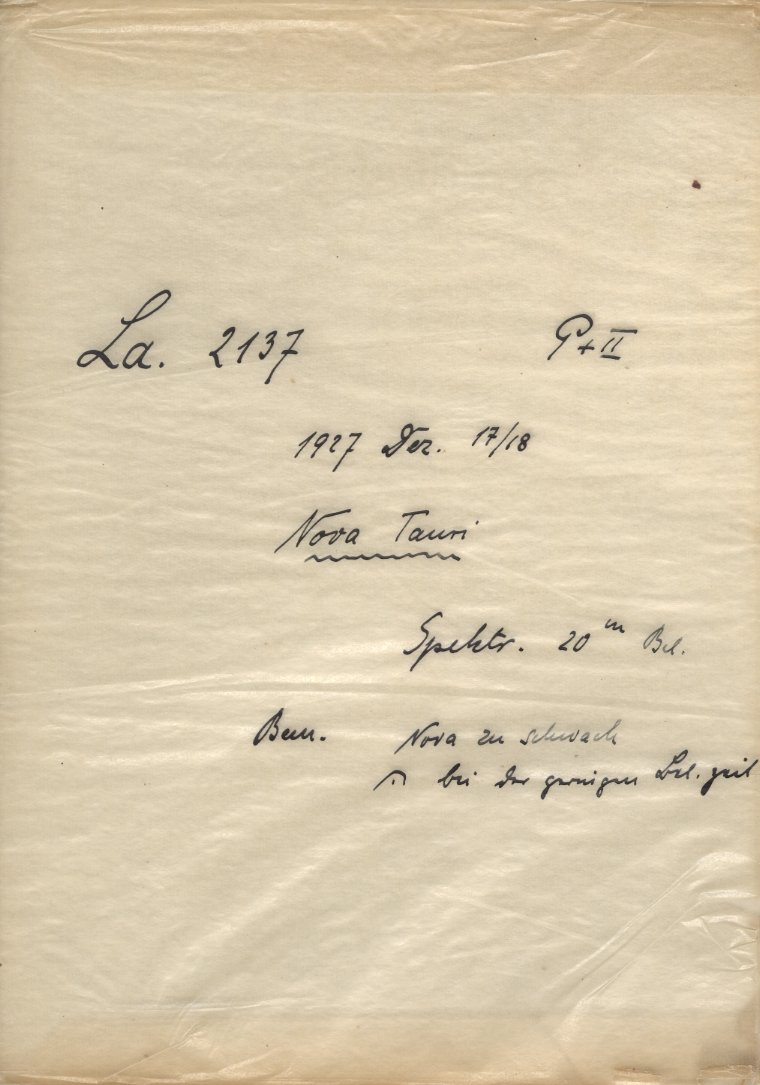 La. 2137 P+II
1927 Dez. 17/18
Nova Tauri
Spektr. 20m Bel.
Bem. Nova zu schwach
bei der geringen Bel. zeit